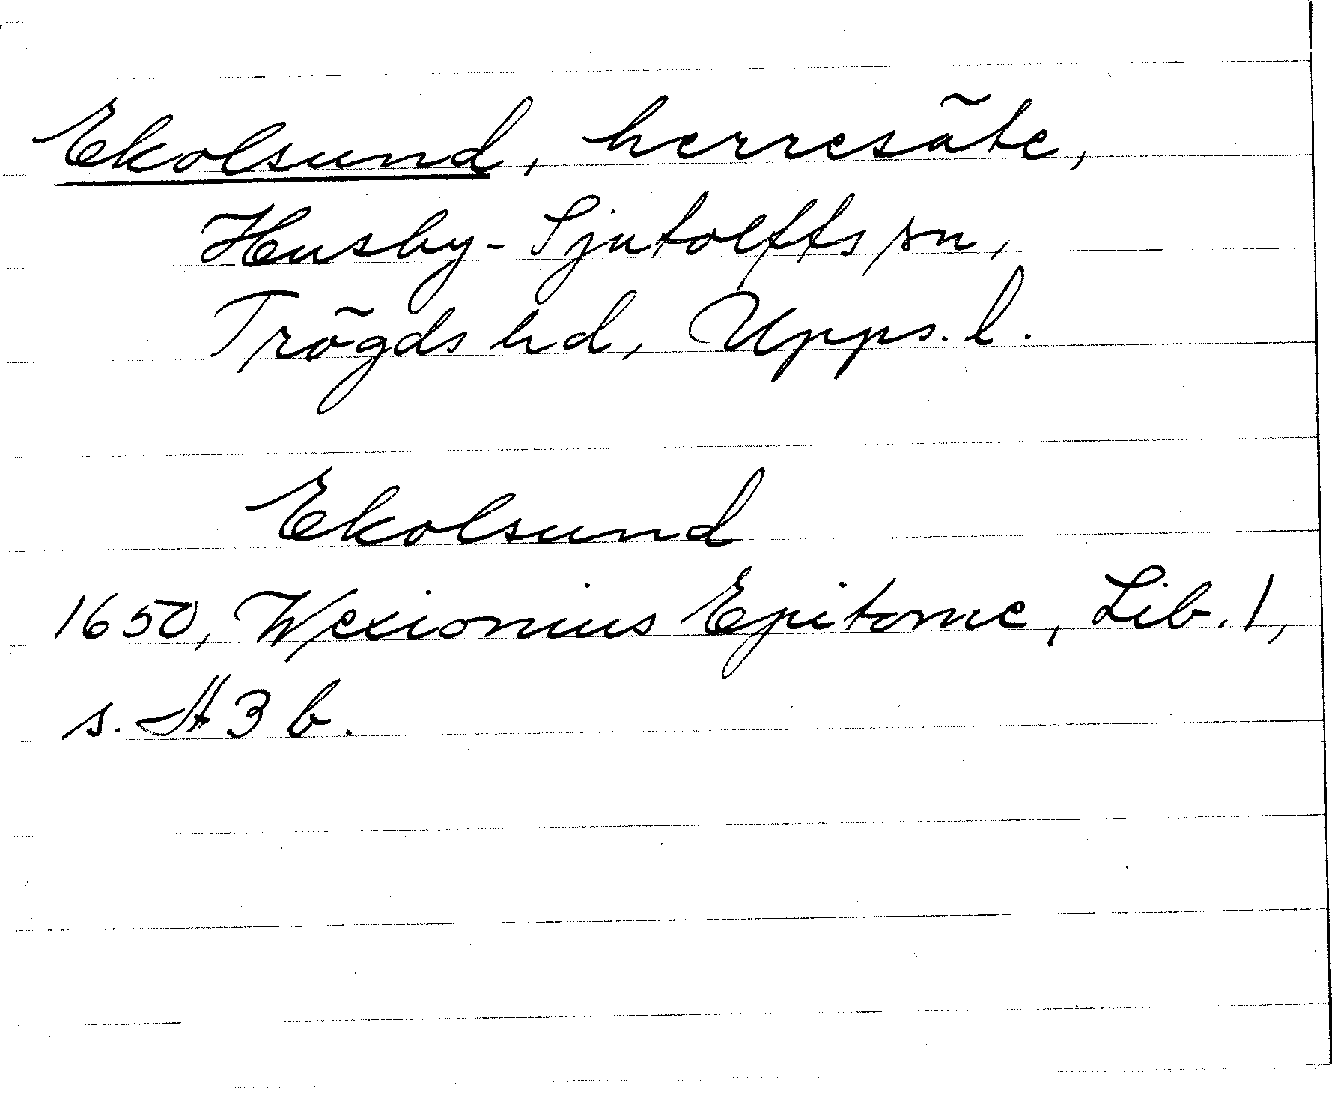 Ekolsund, herresäte,
Husby-Sjutolfts sn,
Trögds hd, Upps. l.
Ekolsund
1650, Wexionius Epitome, Lib. 1,
s. A 3 b.